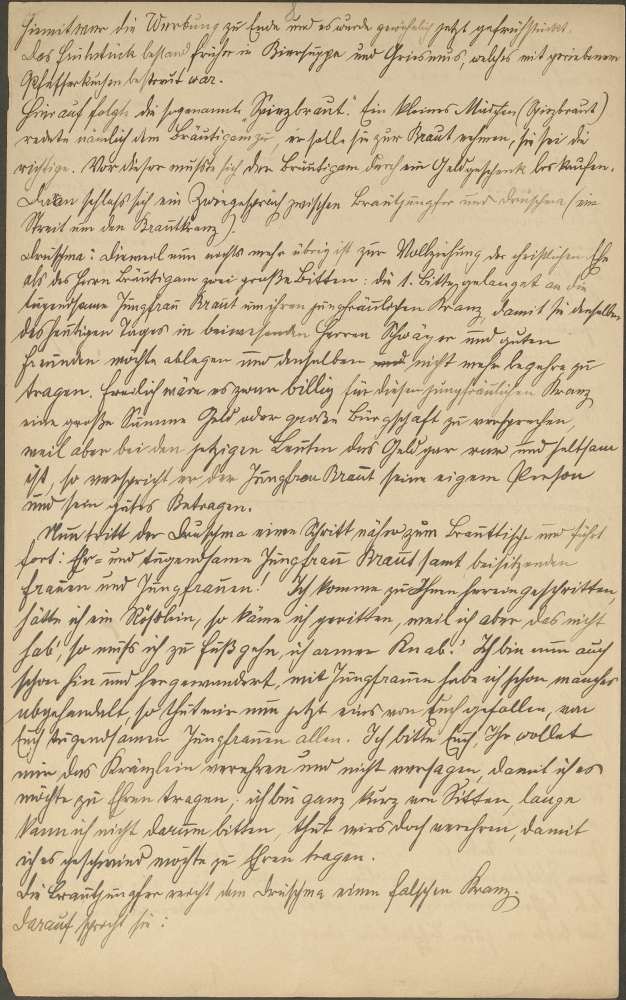 8
Hiemit war die Werbung zu Ende und es wurde gewöhnlich jetzt gefrühstückt.
Das Frühstück bestand früher in Biersuppe und Griesmus, welches mit geriebenem
Pfefferkuchen bestreut war.
Hierauf folgte die sogenannte "Spinzbraut." Ein kleines Mädchen (Spinzbraut)
redete nämlich dem Bräutigam zu, er solle sie zur Braut nehmen, sie sei die
richtige. Vor dieser mußte sich der Bräutigam durch ein Geldgeschenk loskaufen.
Daran schloß sich ein Zwiegespräch zwischen Brautjungfer und Druschma (ein
Streit um den Brautkranz).
Druschma: Dieweil nun nichts mehr übrig ist zur Vollziehung der christlichen Ehe
als des Herrn Bräutigam zwei große Bitten: die 1. Bitte gelanget an die
tugendsame Jungfrau Braut um ihren jungfräulichen Kranz, damit sie denselben
des heutigen Tages in beiwesenden Herren Schwäger und guten
Freunden möchte ablegen und denselben nicht mehr begehre zu
tragen. Freilich wäre es zwar billig für diesen jungfräulichen Kranz
eine große Summe Geld oder große Bürgschaft zu versprechen,
weil aber bei den jetzigen Leuten das Geld gar rar und seltsam
ist, so verspricht er der Jungfrau Braut seine eigene Person
und sein gutes Betragen.
Nun tritt der Druschma einen Schritt näher zum Brauttische und führt
fort: Ehr- und tugendsame Jungfrau Braut samt beisitzenden
Frauen und Jungfrauen! Ich komme zu Ihnen hereingeschritten,
hätte ich ein Rößlein, so käme ich geritten, weil ich aber das nicht
hab', so muß ich zu Fuß gehn, ich armer Knab'! Ich bin nun auch
schon hin und her gewandert, mit Jungfrauen habe ich schon manches
abgehandelt, so thut mir nun jetzt eins von Euch gefallen, von
Euch tugendsamen Jungfrauen allen. Ich bitte Euch, Ihr wollet
mir das Kränzlein verehren und nicht versagen, damit ich es
möchte zu Ehren tragen; ich bin ganz kurz von Sitten, lange
kann ich nicht darum bitten, thut mirs doch verehren, damit
ich es geschwind möchte zu Ehren tragen.
Die Brautjungfer reicht dem Druschma einen falschen Kranz.
Darauf spricht sie: